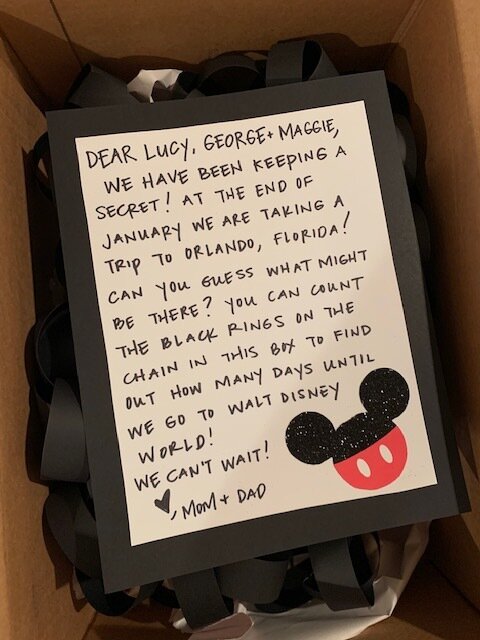 DEAR LUCY, GEORGE + MAGGIE,
WE HAVE BEEN KEEPING A
SECRET! AT THE END OF
JANUARY WE ARE TAKING A
TRIP TO ORLANDO, FLORIDA!
CAN YOU GUESS WHAT MIGHT
BE THERE? YOU CAN COUNT
THE BLACK RINGS ON THE
CHAIN IN THIS BOX TO FIND
OUT HOW MANY DAYS UNTIL
WE GO TO WALT DISNEY
WORLD!
WE CAN'T WAIT!
♥, MOM + DAD